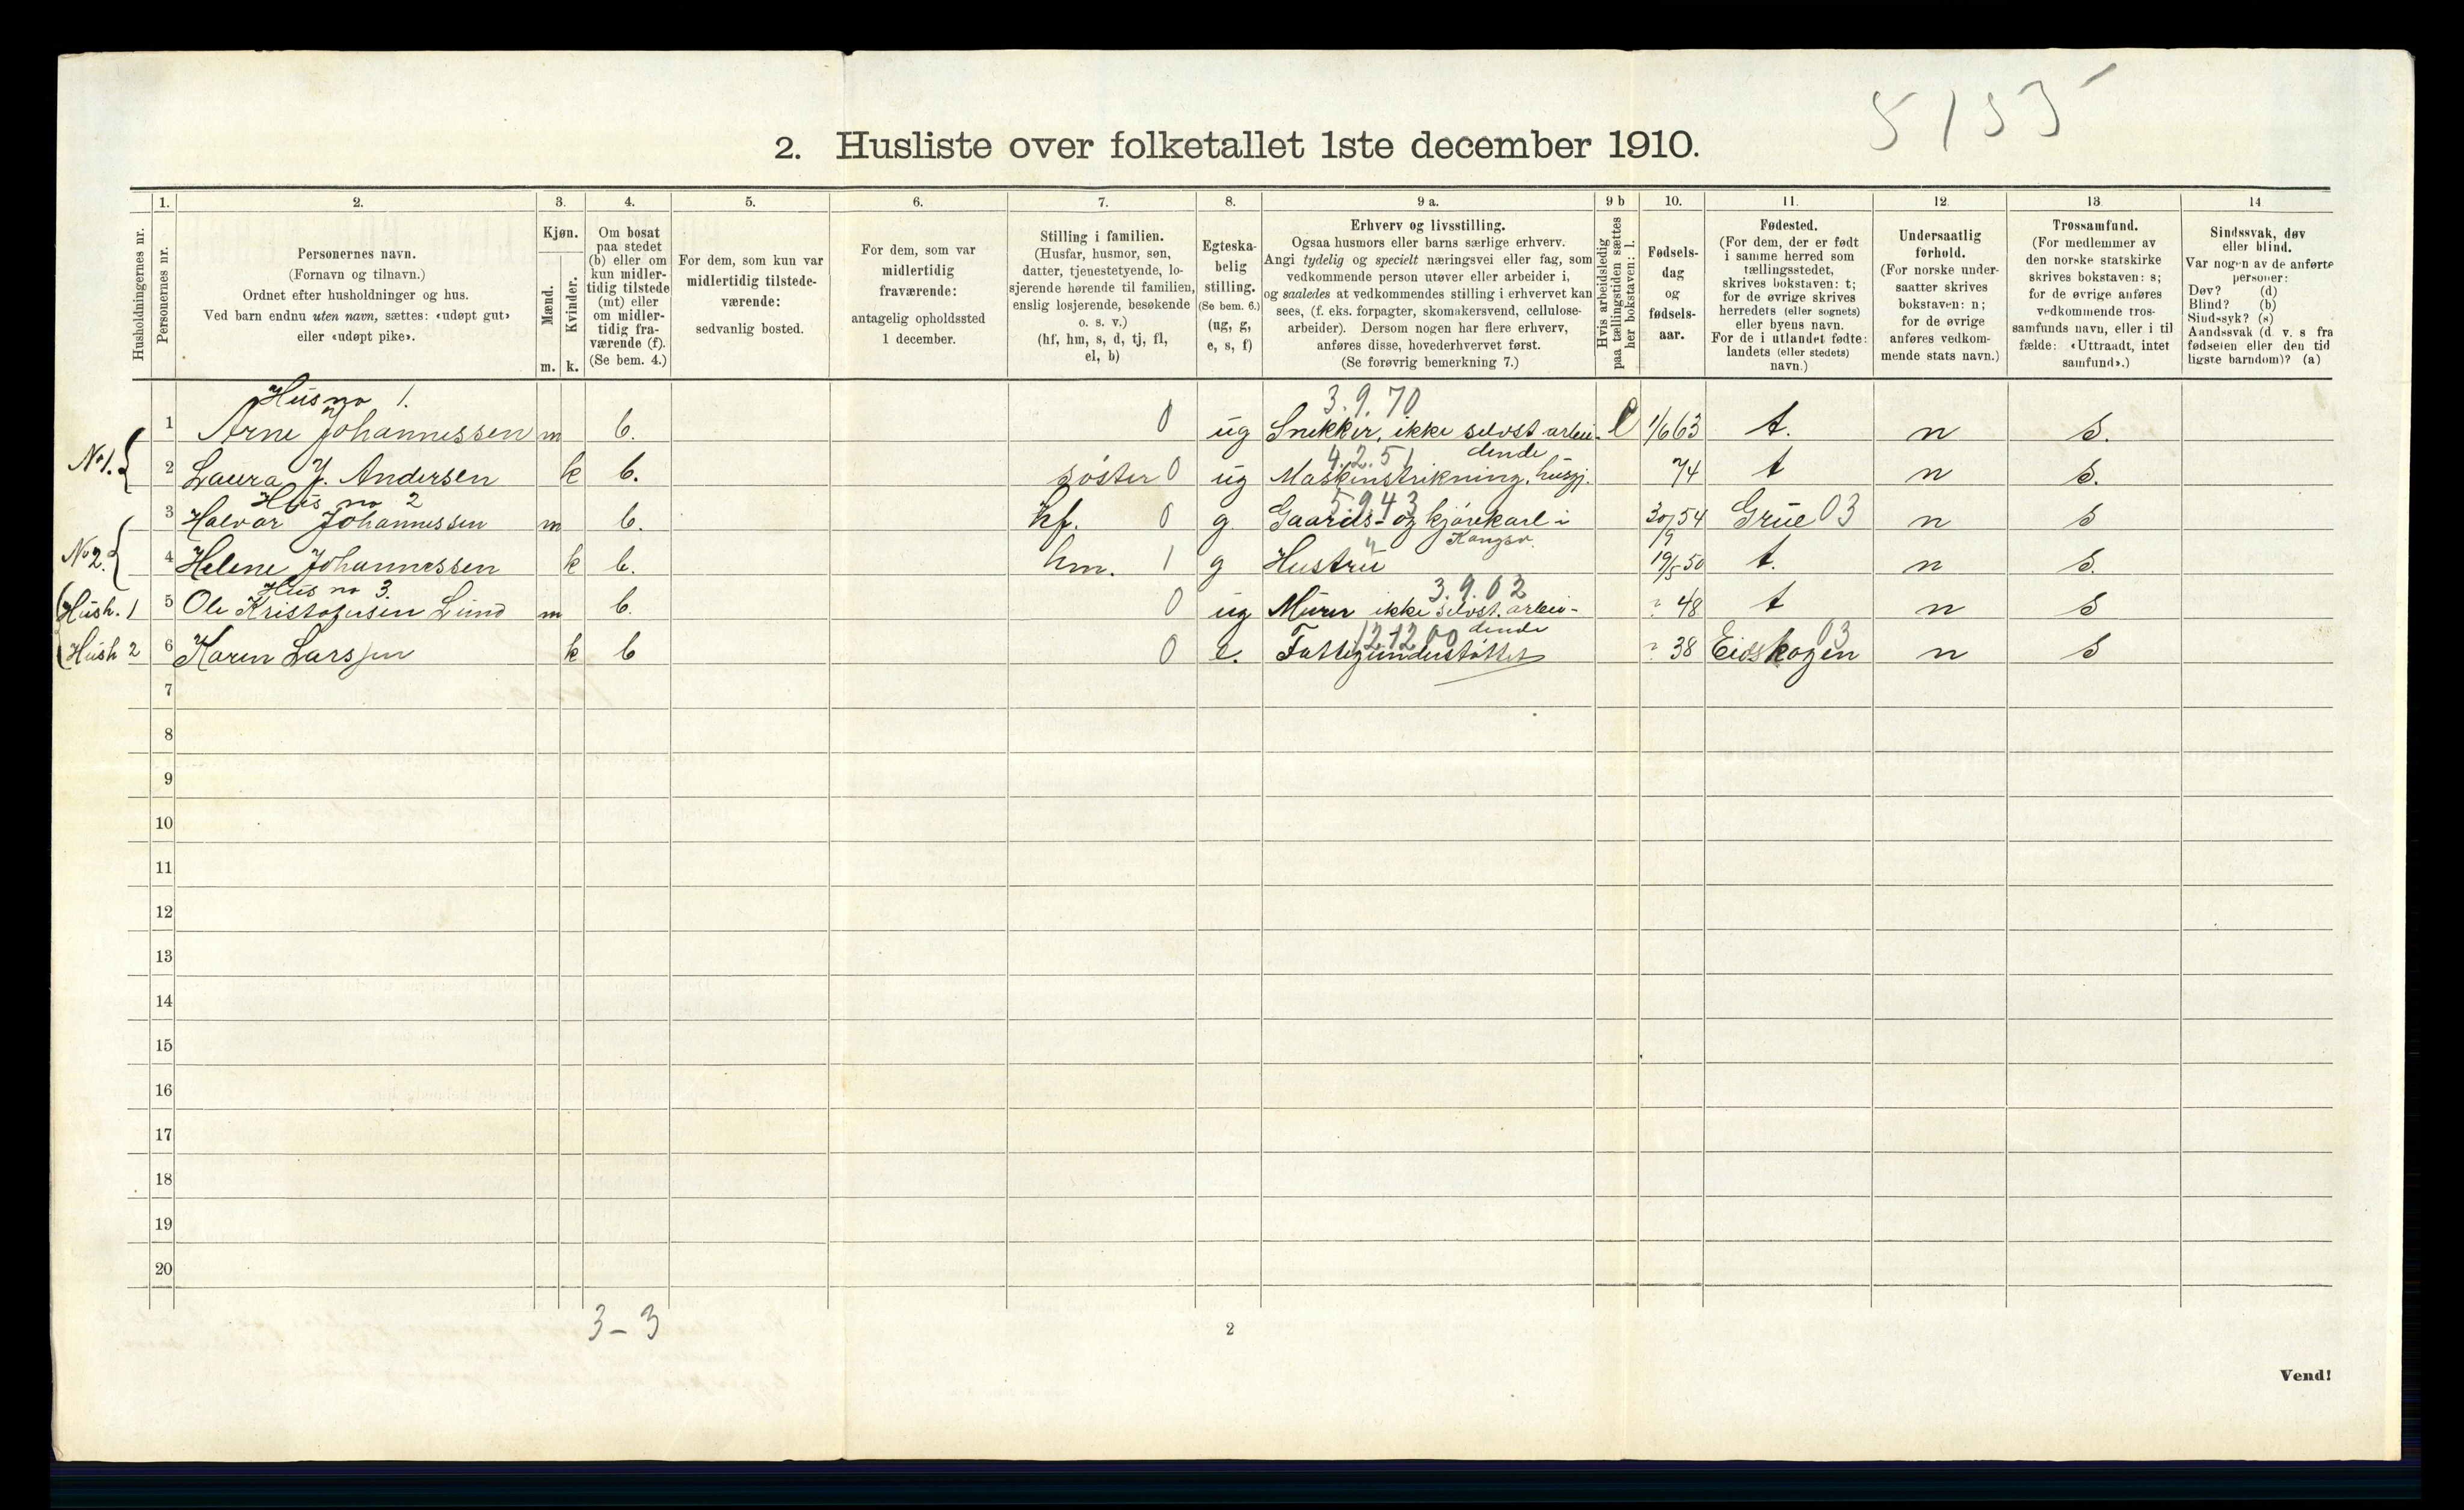 5155
2. Husliste over folketallet 1ste december 1910.
1. 2. 3. 4. 5. 6. 7. 8. 9 a. 9 b 10. 11. 12. 13. 14
Husholdningernes nr.
Personernes nr.
Personernes navn.
(Fornavn og tilnavn.)
Ordnet efter husholdninger og hus.
Ved barn endnu uten navn, sættes: «udøpt gut»
eller «udøpt pike».
Kjøn.
Mænd.
Kvinder.
m. k.
Om bosat
paa stedet
(b) eller om
kun midler-
tidig tilstede
(mt) eller
om midler-
tidig fra-
værende (f).
(Se bem. 4.)
For dem, som kun var
midlertidig tilstede-
værende:
sedvanlig bosted.
For dem, som var
midlertidig
fraværende:
antagelig opholdssted
1 december.
Stilling i familien.
(Husfar, husmor, søn,
datter, tjenestetyende, lo-
sjerende hørende til familien,
enslig losjerende, besøkende
o. s. v.)
(hf, hm, s, d, tj, fl,
el, b)
Egteska-
belig
stilling.
(Se bem. 6.)
(ug, g,
e, s, f)
Erhverv og livsstilling.
Ogsaa husmors eller barns særlige erhverv.
Angi tydelig og specielt næringsvei eller fag, som
vedkommende person utøver eller arbeider i,
og saaledes at vedkommendes stilling i erhvervet kan
sees, (f. eks. forpagter, skomakersvend, cellulose-
arbeider). Dersom nogen har flere erhverv,
anføres disse, hovederhvervet først.
(Se forøvrig bemerkning 7.)
Hvis arbeidsledig
paa tællingstiden sættes
her bokstaven: l.
Fødsels-
dag
og
fødsels-
aar.
Fødested.
(For dem, der er født
i samme herred som
tællingsstedet,
skrives bokstaven: t;
for de øvrige skrives
herredets (eller sognets)
eller byens navn.
For de i utlandet fødte:
landets (eller stedets)
navn.)
Undersaatlig
forhold.
(For norske under-
saatter skrives
bokstaven: n;
for de øvrige
anføres vedkom-
mende stats navn.)
Trossamfund.
(For medlemmer av
den norske statskirke
skrives bokstaven: s;
for de øvrige anføres
vedkommende tros-
samfunds navn, eller i til
fælde: «Uttraadt, intet
samfund».)
Sindssvak, døv
eller blind.
Var nogen av de anførte
personer:
Døv? (d)
Blind? (b)
Sindssyk? (s)
Aandssvak (d. v. s. fra
fødselen eller den tid
ligste barndom)? (a)
Hus no 1. 3.9.70
No 1. 1 Arne Johannessen m b. 0 ug Snekker, ikke selvst. arbei- l 1/6 63 t. n s.
dende
4.2.51
2 Laura J. Andersen k b. søster 0 ug Maskinstrikning, husgj. 74 t n s.
Hus no 2 5.9.43
No 2. 3 Halvor Johannessen m b. hf. 0 g. Gaards- og kjørekarl i 30/9 54 Grue 03 n s
Kongsv.
4 Helene Johannessen k b. hm. 1 g Hustru 19/5 50 t. n s.
Hus no 3. 3.9.02
Hush. 1 5 Ole Kristofersen Lund m b. 0 ug Murer ikke selvst. arbei- ? 48 t n s
dende
12.12.00
Hush 2 6 Karen Larssen k b 0 e. Fattigunderstøttet ? 38 Eidskogen 03 n s
7
8
9
10
11
12
13
14
15
16
17
18
19
20
3-3
2
Vend!